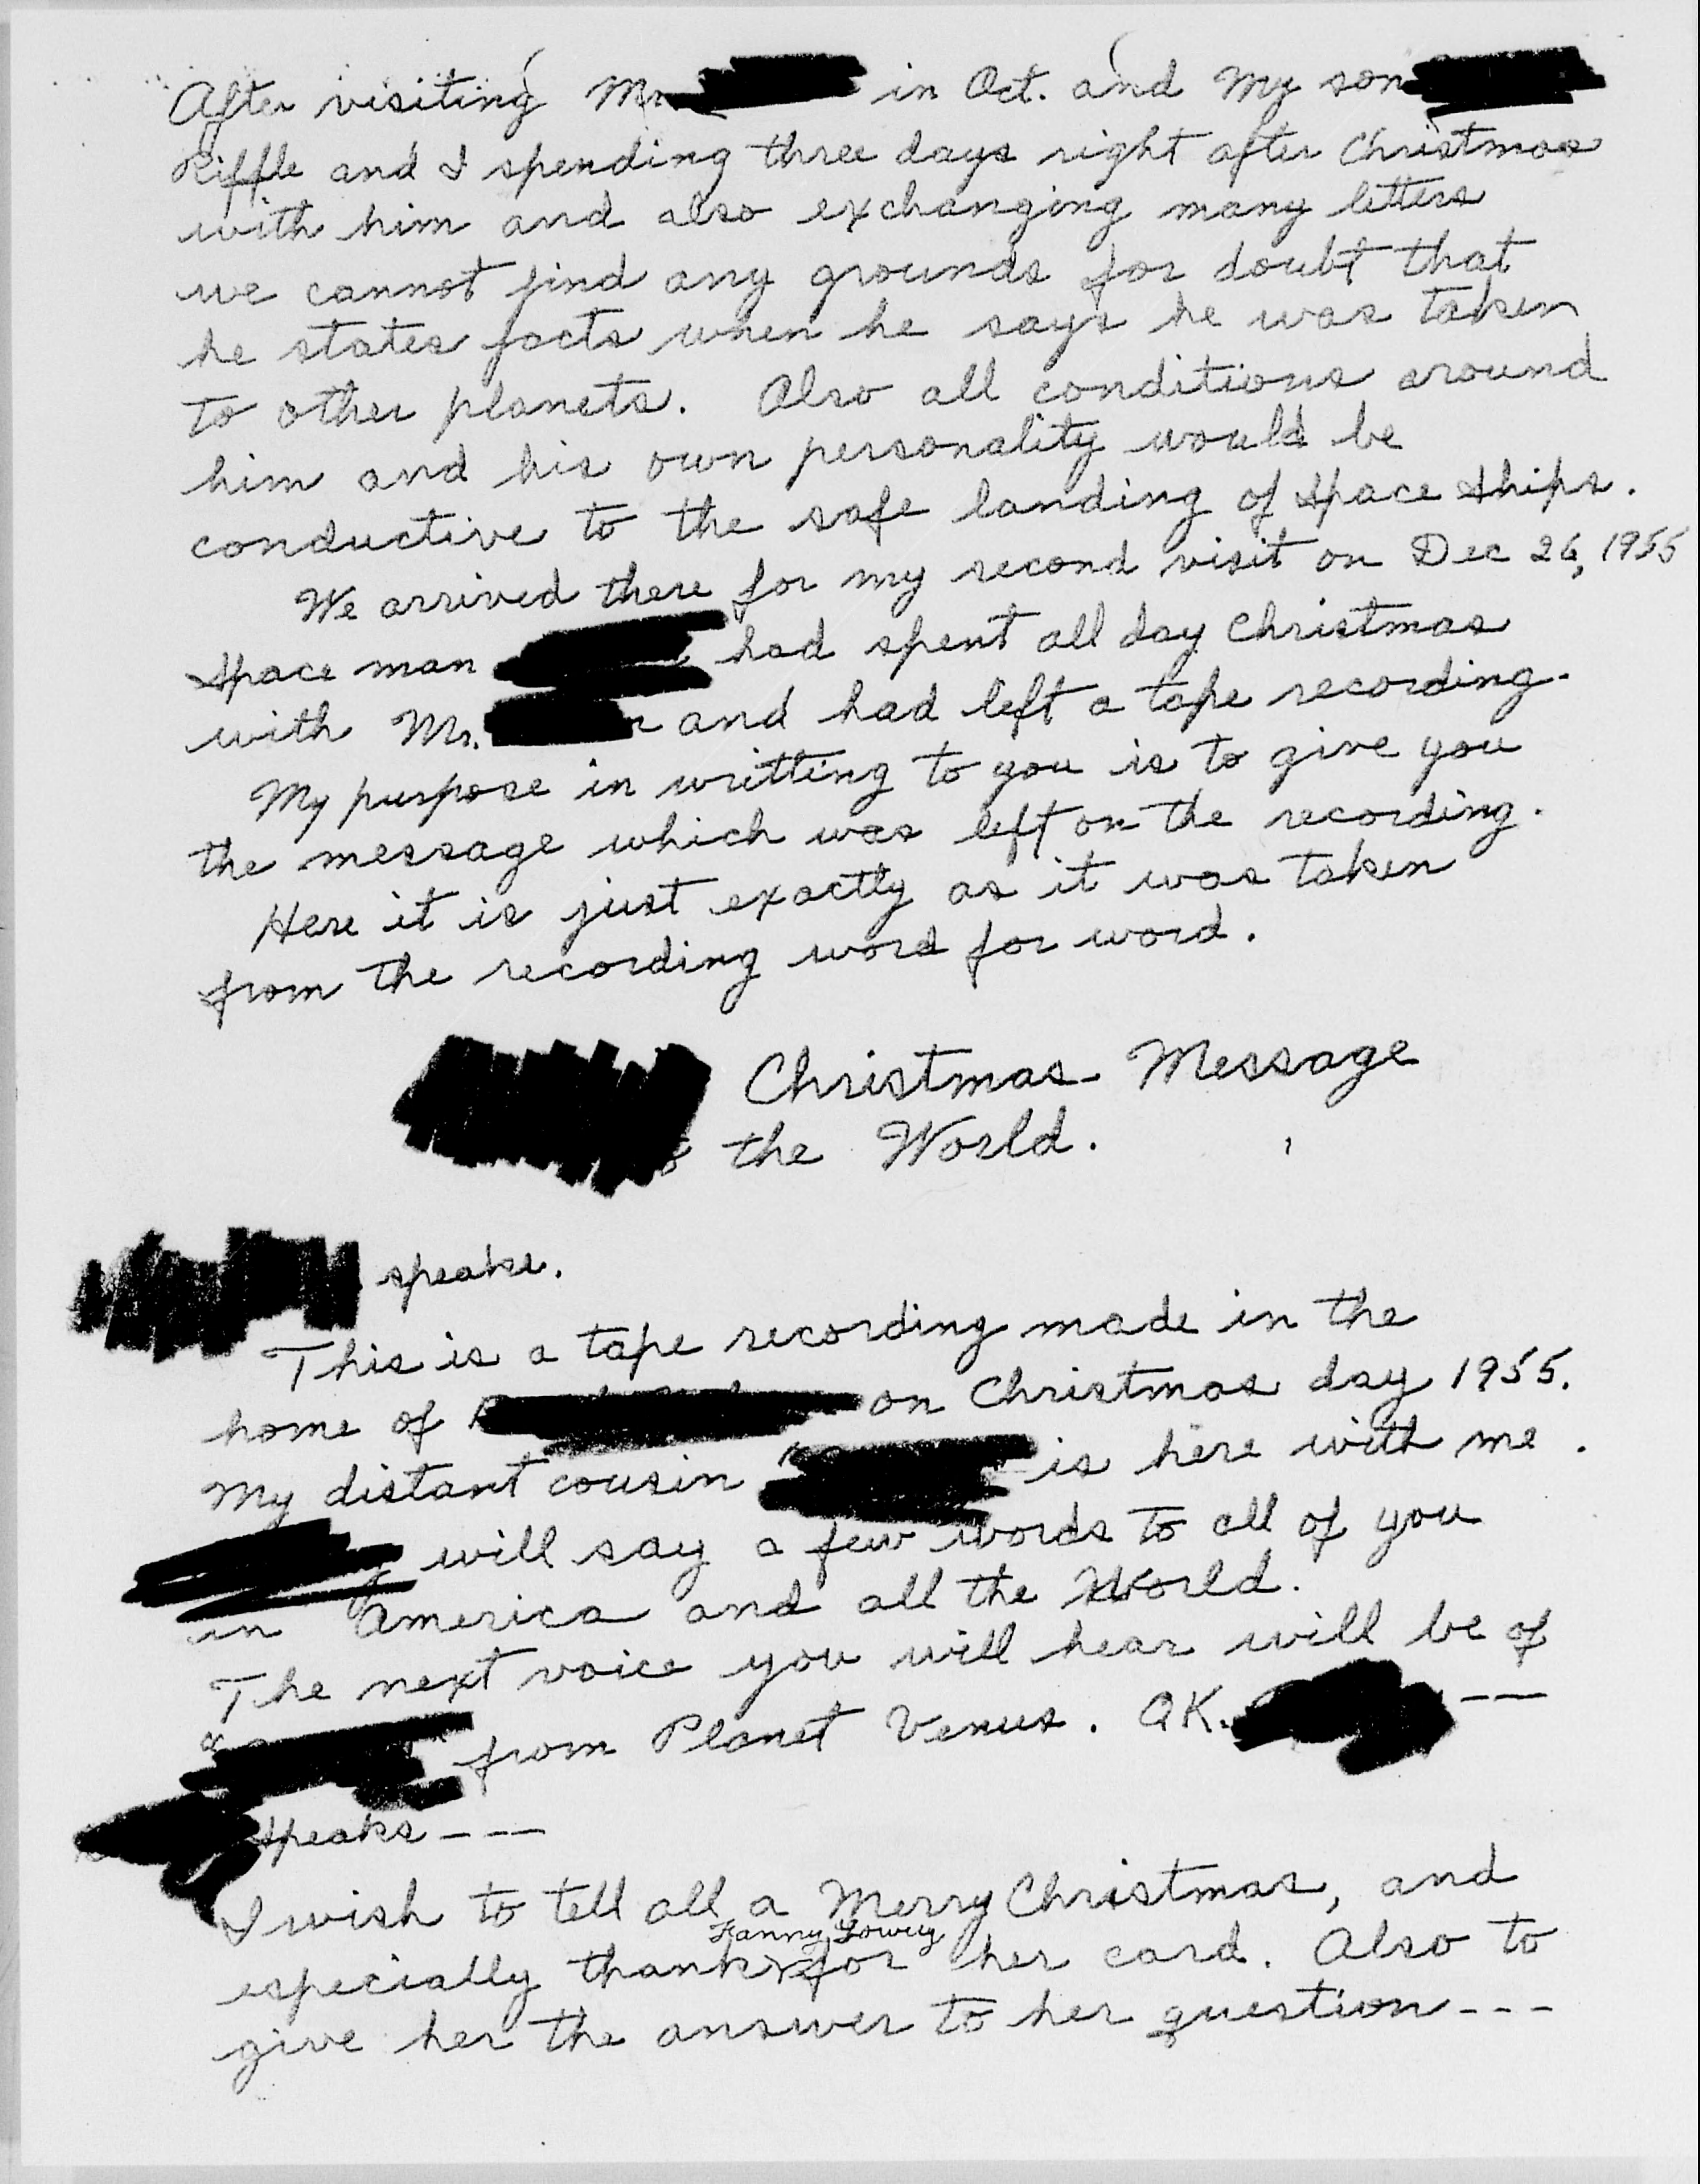 After visiting Mr in Oct. and My son
Riffle and I spending three days right after Christmas
with him and also exchanging many letters
we cannot find any grounds for doubt that
he states facts when he says he was taken
to other planets. Also all conditions around
him and his own personality would be
conductive to the safe landing of space ships.
We arrived there for my second visit on Dec 26, 1955
Space man had spent all day Christmas
with Mr. and had left a tape recording.
My purpose in writting to you is to give you
the message which was left on the recording.
Here it is just exactly as it was taken
from the recording word for word.
Christmas Message
the World.
speaks.
This is a tape recording made in the
home of on Christmas day 1955.
My distant cousin is here with me.
will say a few words to all of you
in America and all the World.
The next voice you will hear will be of
from Planet Venus. OK. --
speaks ---
I wish to tell all a Merry Christmas, and
Fanny Lowry
especially thank for her card. Also to
give her the answer to her question ---